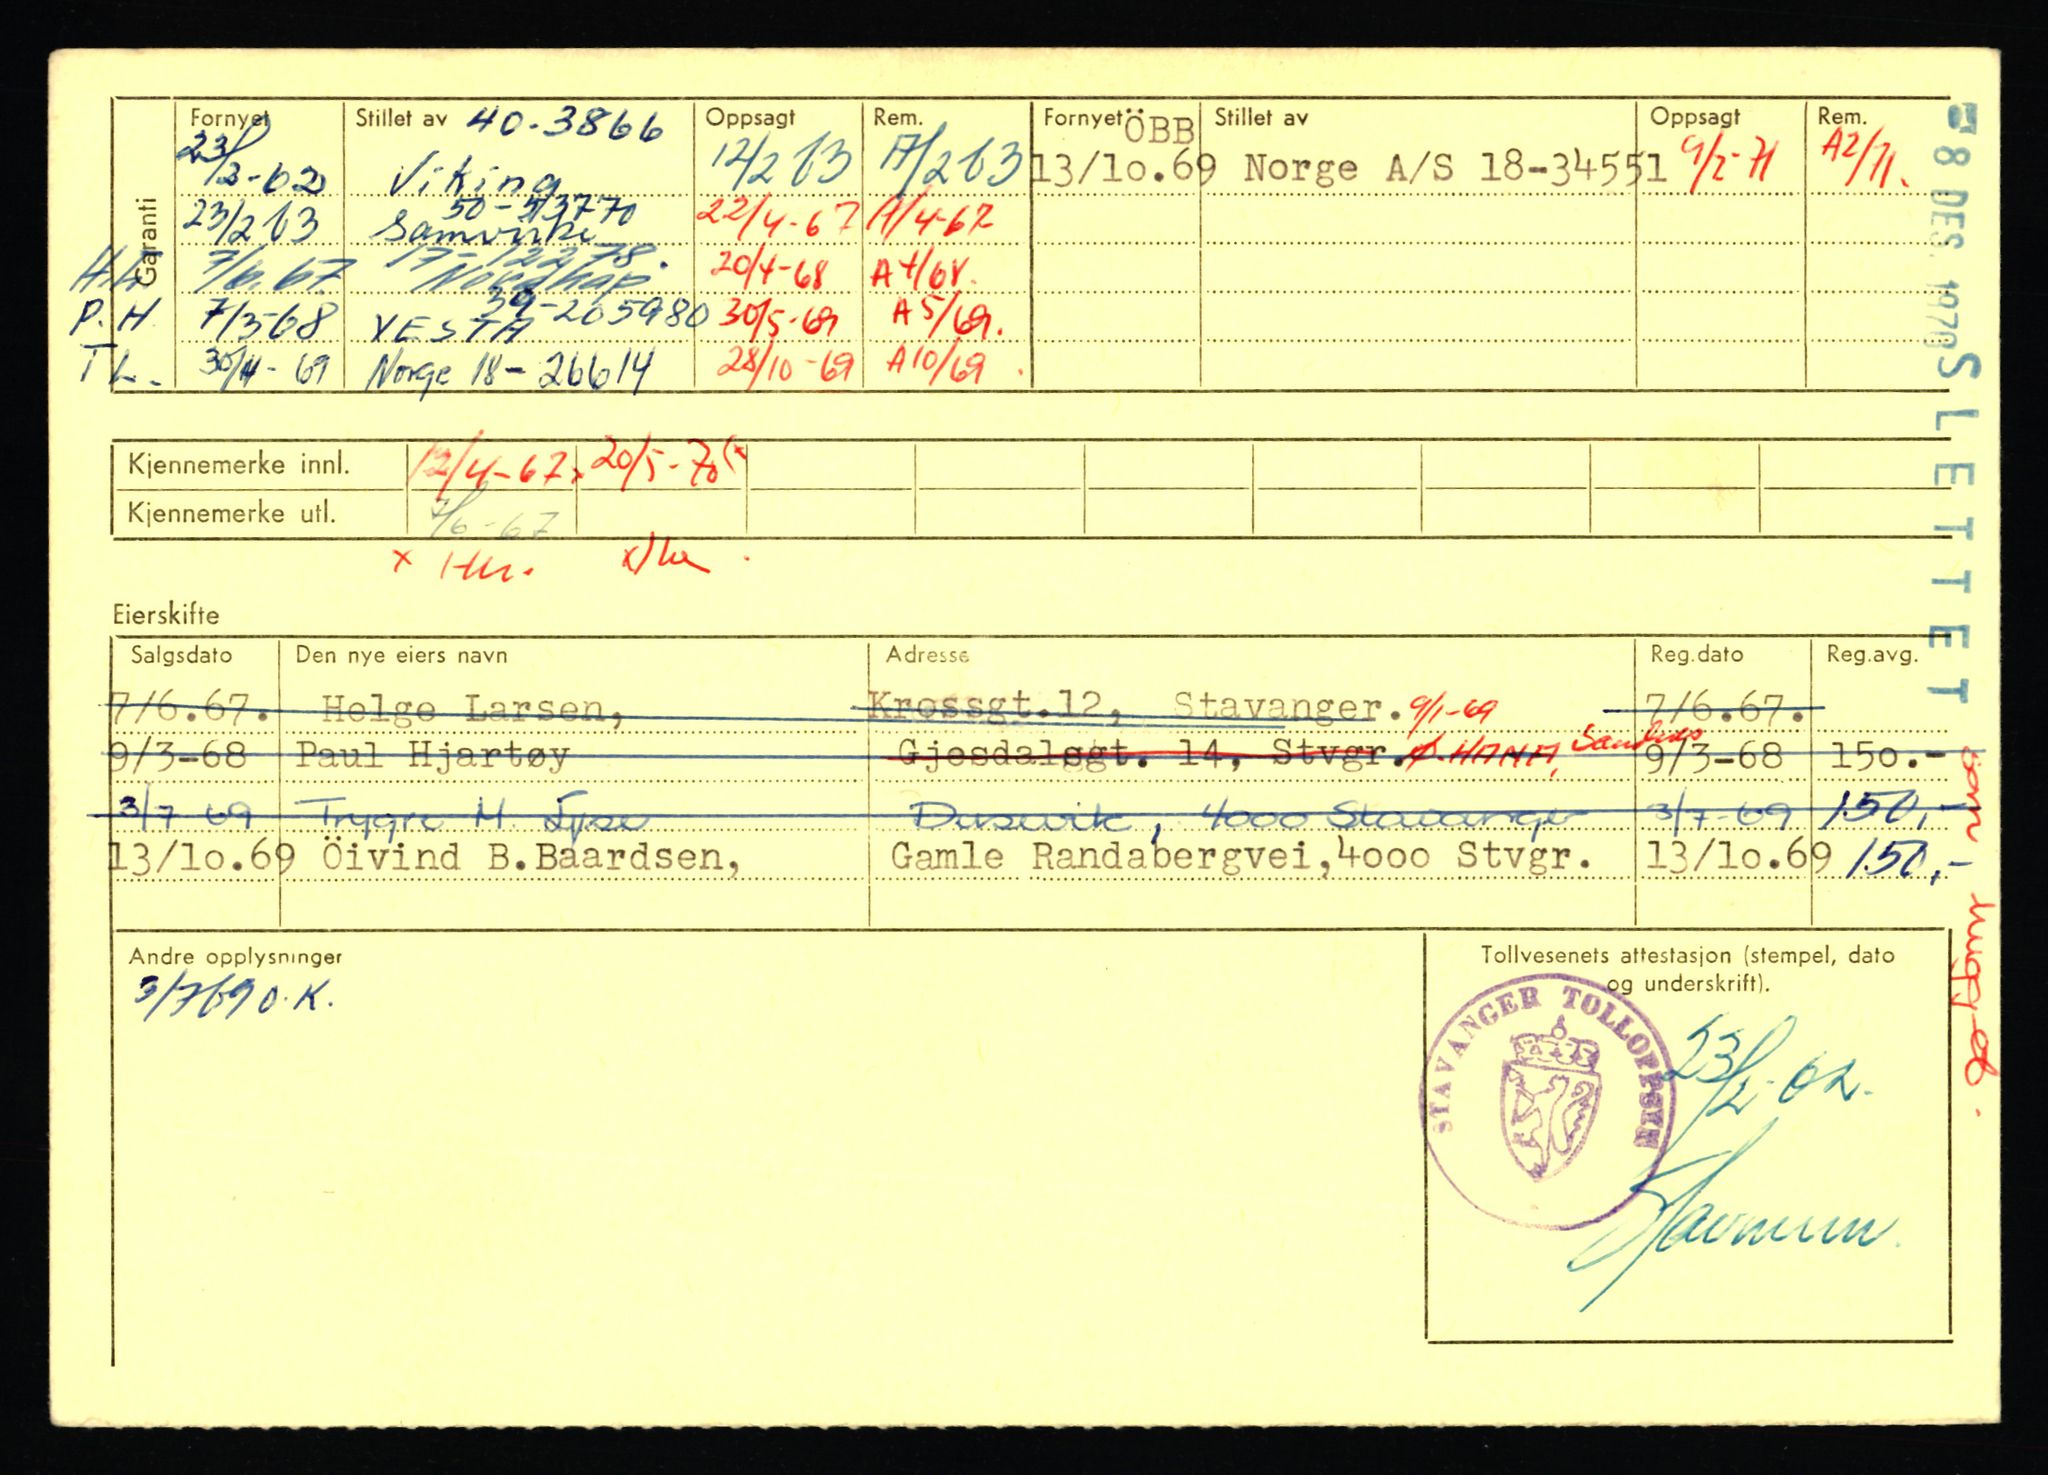 Garanti
Fornyet Stillet av 40-3866 Oppsagt Rem. Fornyet ÖBB Stillet av Oppsagt Rem.
23/2-62 Viking 12/2 63 17/2 63 13/10.69 Norge A/S 18-34551 9/2-71 A2/71.
23/2 63 Samvirke 22/4-67 4-67
7/6.67 17-12278. Nordkap 20/4-68 A4/68.
P.H. 7/3-68 VESTA 39-205980 30/5-69 A5/69.
T L. 30/4-69 Norge 18-26614 28/10-69 A10/69.
Kjennemerke innl. 12/4-67x 20/5-70
Kjennemerke utl. 7/6-67
Eierskifte
Salgsdato Den nye eiers navn Adresse Reg.dato Reg.avg.
7/6.67. Helge Larsen, Krossgt.12, Stavanger. 9/1-69 7/6.67.
9/3-68 Paul Hjartøy Gjesdalsgt. 14, Stvgr. HANA, Sandnes 9/3-68 150.-
3/7 69 Trygve M. Lyse Dusevik, 4000 Stavanger 3/7-69 150,-
13/lo.69 Öivind B.Baardsen, Gamle Randabergvei,4ooo Stvgr. 13/lo.69 150,-
Andre opplysninger
3/7 69 O.K.
Tollvesenets attestasjon (stempel, dato
og underskrift).
STAVANGER TOLLOPPSYN
23/2-62.
8 DES. 1970 SLETTET